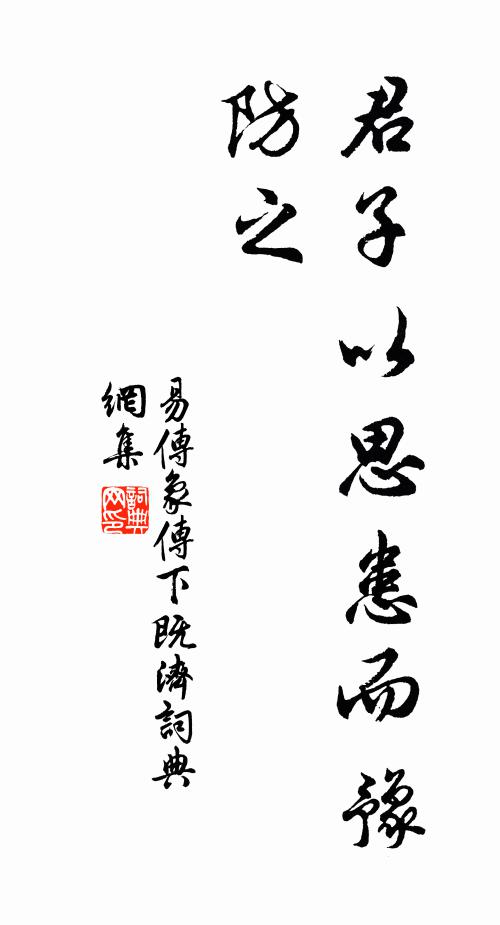 君子以思患而豫
防之
易傳象傳下既濟詞典
網集
詞典
网印